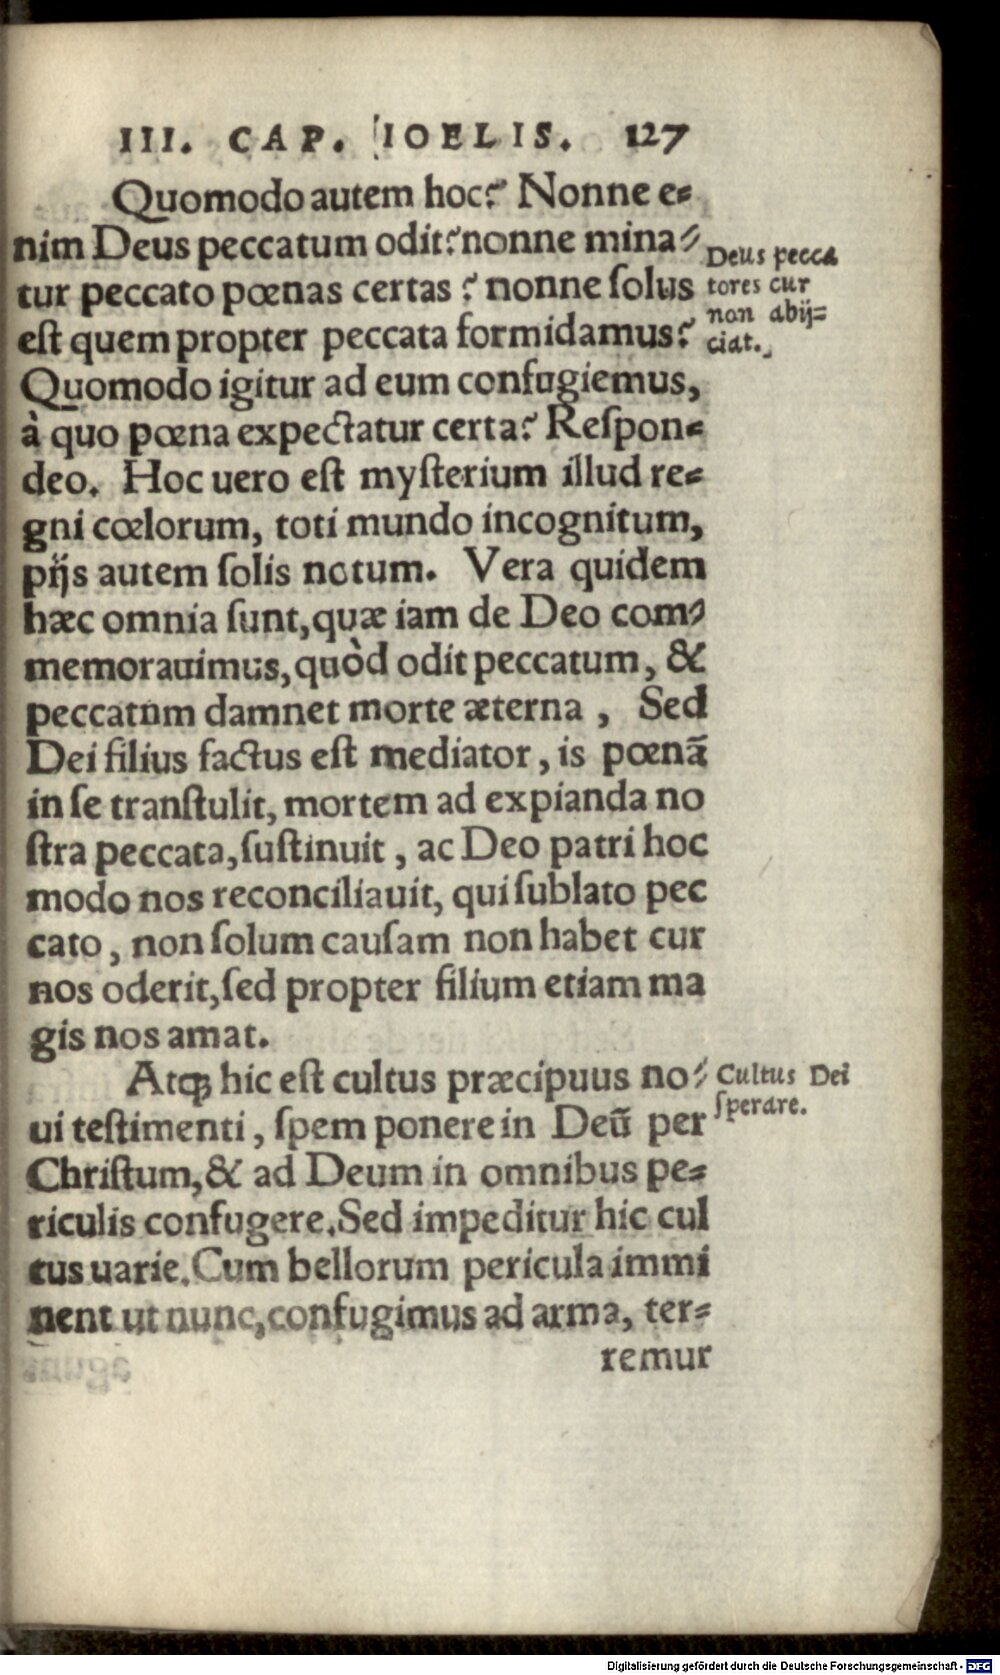 III. CAP. IOELIS. 127
Quomodo autem hoc? Nonne e-
nim Deus peccatum odit? nonne mina-
tur peccato pœnas certas ? nonne ſolus
eſt quem propter peccata formidamus?
Quomodo igitur ad eum confugiemus,
à quo pœna expectatur certa? Reſpon-
deo. Hoc uero eſt myſterium illud re-
gni cœlorum, toti mundo incognitum,
pijs autem ſolis notum. Vera quidem
hæc omnia ſunt, quæ iam de Deo com-
memorauimus, quòd odit peccatum, &
peccatum damnet morte æterna , Sed
Dei filius factus eſt mediator, is pœnã
in ſe tranſtulit, mortem ad expianda no
ſtra peccata, ſuſtinuit , ac Deo patri hoc
modo nos reconciliauit, qui ſublato pec
cato , non ſolum cauſam non habet cur
nos oderit, ſed propter filium etiam ma
gis nos amat.
Atqꝫ hic eſt cultus præcipuus no-
ui teſtimenti , ſpem ponere in Deũ per
Chriſtum, & ad Deum in omnibus pe-
riculis confugere. Sed impeditur hic cul
tus uarie. Cum bellorum pericula immi
nent ut nunc, confugimus ad arma, ter-
remur
Deus pecca
tores cur
non abij-
ciat.
Cultus Dei
ſperare.
Digitalisierung gefördert durch die Deutsche Forschungsgemeinschaft - DFG